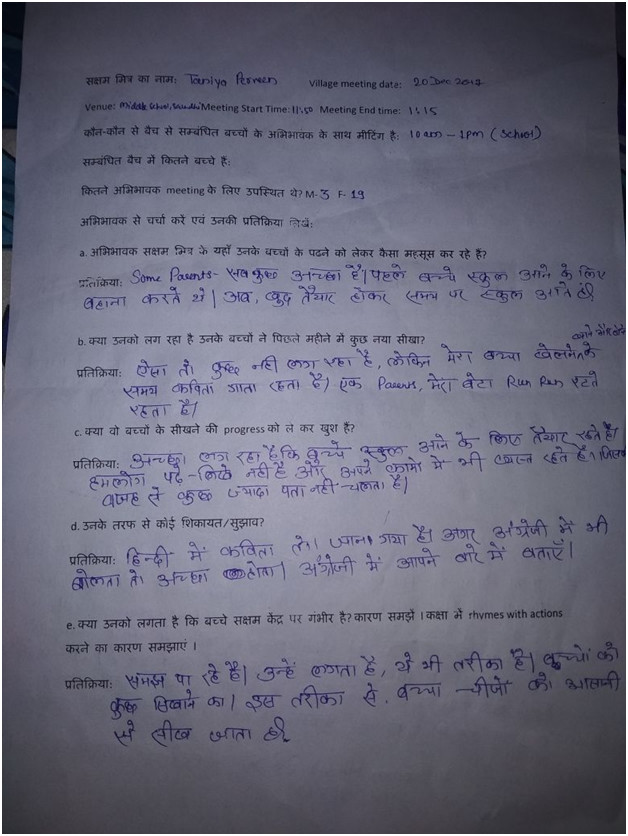 सक्षम मित्र का नाम: Taniya Perween Village meeting date: 20 Dec 2017
Venue: Middle School, Meeting Start Time: 11:50 Meeting End time: 1:15
कौन-कौन से बैच से सम्बंधित बच्चों के अभिभावक के साथ मीटिंग है: 10 am - 1 pm (School)
सम्बंधित बैच में कितने बच्चे हैं:
कितने अभिभावक meeting के लिए उपस्थित थे? M- 3 F- 19
अभिभावक से चर्चा करें एवं उनकी प्रतिक्रिया लिखें:
a. अभिभावक सक्षम मित्र के यहाँ उनके बच्चों के पढने को लेकर कैसा महसूस कर रहे हैं?
प्रतिक्रिया: Some Parents- सब कुछ अच्छा है। पहले बच्चे स्कूल आने के लिए
बहाना करते थे। अब, खुद तैयार होकर समय पर स्कूल आते हैं
b. क्या उनको लग रहा है उनके बच्चों ने पिछले महीने में कुछ नया सीखा?
प्रतिक्रिया: ऐसा तो कुछ नहीं लग रहा है, लेकिन मेरा बच्चा खेलने के
समय कविता गाता रहता है। एक Parents, मेरा बेटा Run Run रटते
रहता है।
c. क्या वो बच्चों के सीखने की progress को ले कर खुश हैं?
प्रतिक्रिया: अच्छा लग रहा है कि बच्चे स्कूल आने के लिए तैयार रहते हैं।
हमलोग पढ़े-लिखे नहीं है और अपने कामों में भी व्यस्त रहते हैं।
वजह से कुछ ज्यादा पता नहीं चलता है।
d. उनके तरफ से कोई शिकायत/सुझाव?
प्रतिक्रिया: हिन्दी में कविता तो गया है। अगर अंग्रेजी में भी
बोलता तो अच्छा होता। अंग्रेजी में आपने बारे में बताएँ।
e. क्या उनको लगता है कि बच्चे सक्षम केंद्र पर गंभीर है? कारण समझें । कक्षा में rhymes with actions
करने का कारण समझाएं ।
प्रतिक्रिया: समझ पा रहे है। उन्हें लगता है, ये भी तरीका है। बच्चों को
कुछ सिखाने का। इस तरीका से, बच्चा चीजों को आसानी
से सीख जाता है